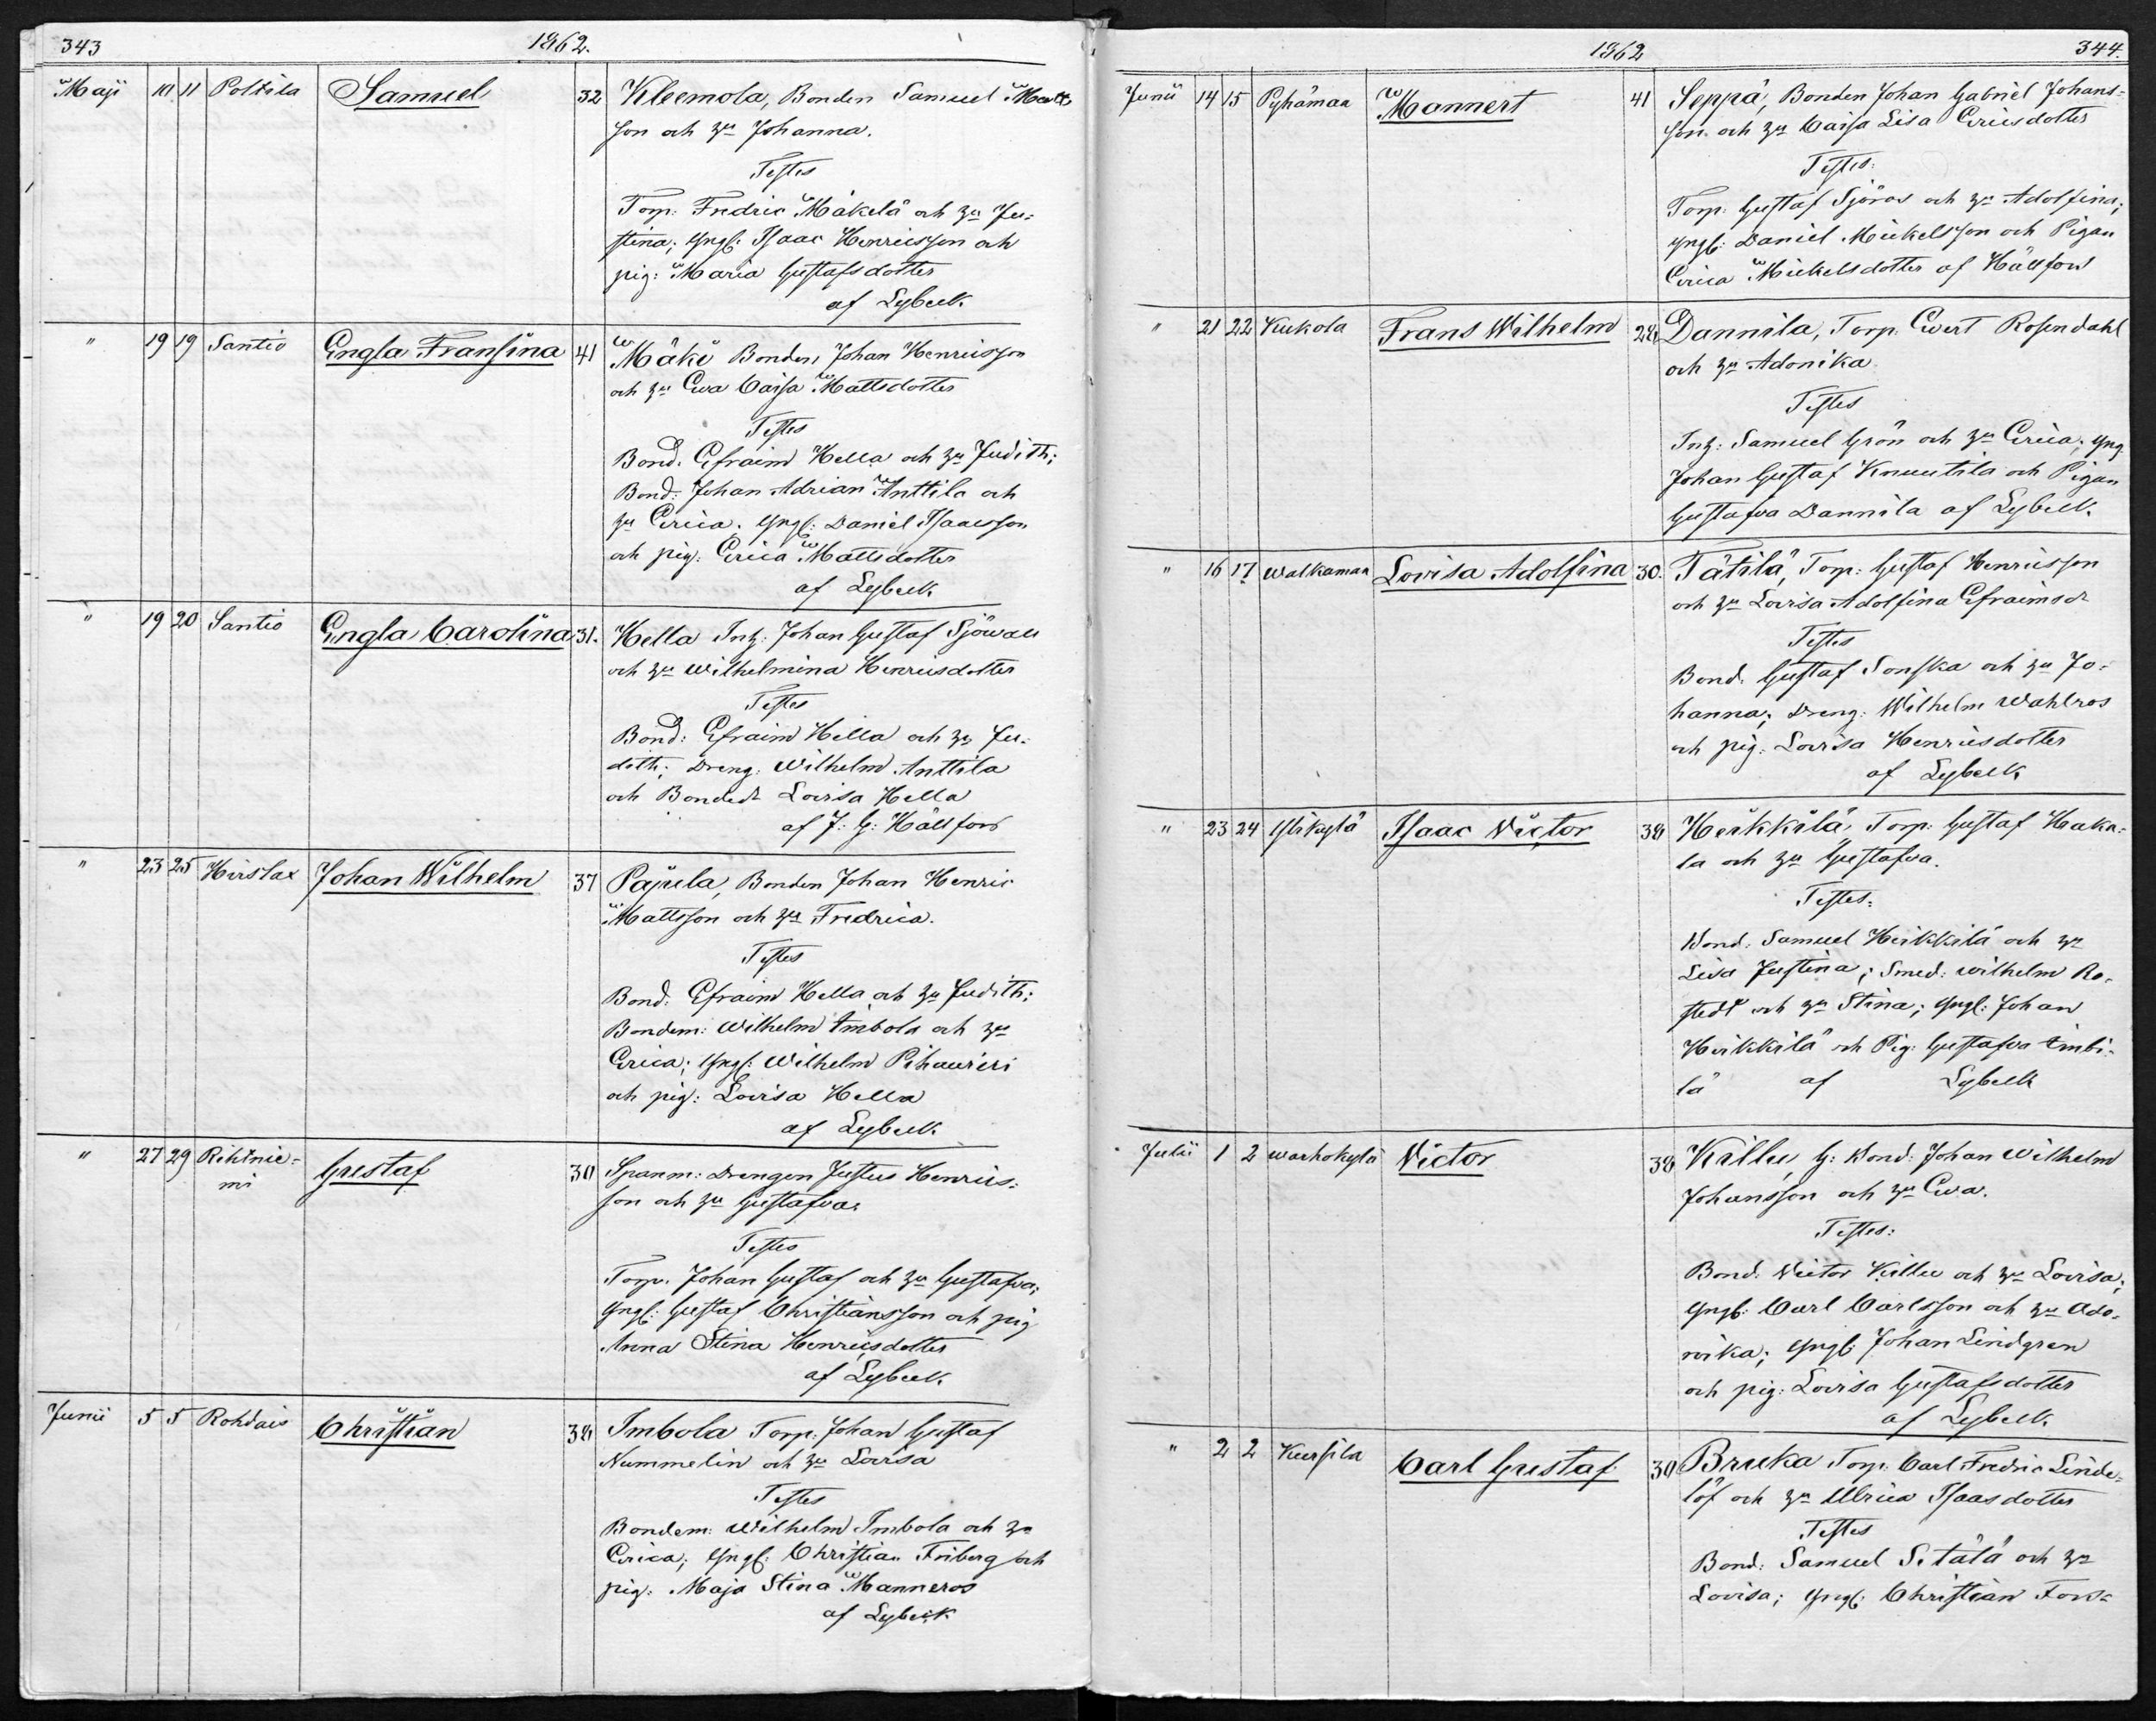 343
1862.
Maji 10 11 Polttila Samuel 32 Kleemola, Bonden Samuel Matts
son och hu Johanna.
Testes
Torp: Fredric Mäkelä och hu Ju-
stina; Yngl: Isaac Henricsson och
pig: Maria Gustafsdotter
af Lybeck.
" 19 19 Santio Engla Fransina 41 Mäki Bonden Johan Henricsson
och hu Ewa Caisa Mattsdotter
Testes
Bond: Efraim Hella och hu Judith;
Bond: Johan Adrian Anttila och
hu Erica. Yngl: Daniel Isaacsson
och pig: Erica Mattsdotter
af Lybeck.
" 19 20 Santio Engla Carolina 31. Hella Inh: Johan Gustaf Sjöwall
och hu Wilhelmina Henricsdotter
Testes
Bond: Efraim Hella och hu Ju-
dith; Dreng: Wilhelm Anttila
och Bonded: Lovisa Hella
af J: G: Hällfors
" 23 25 Hirslax Johan Wilhelm 37 Pajula, Bonden Johan Henric
Mattsson och hu Fredrica.
Testes
Bond: Efraim Hella och hu Judith;
Bondem: Wilhelm Imbola och hu
Erica; Yngl: Wilhelm Pihaurieri
och pig: Lovisa Hella
af Lybeck.
" 27 29 Rihtnie-
mi Gustaf 30 Spanm: Drengen Justus Henrics-
son och hu Gustafva.
Testes
Torp. Johan Gustaf och hu Gustafva;
Yngl: Gustaf Christiansson och pig
Anna Stina Henricsdotter
af Lybeck.
Junii 5 5 Rohdais Christian 38 Imbola Torp: Johan Gustaf
Nummelin och hu Lovisa
Testes
Bondem: Wilhelm Imbola och hu
Erica; Yngl: Christian Friberg och
pig: Maja Stina Manneros
af Lybeck
1862
344.
Junii 14 15 Pyhämaa Mannert 41 Seppä, Bonden Johan Gabriel Johans-
son och hu Caisa Lisa Ericsdotter
Testes:
Torp: Gustaf Sjöros och hu Adolfina;
Yngl: Daniel Mickelsson och Pigan
Erica Mickelsdotter af Hällfors
" 21 22 Kukola Frans Wilhelm 28. Dannila, Torp: Evert Rosendahl
och hu Adonika
Testes
Inh: Samuel Grön och hu Erica; Yng.
Johan Gustaf Knuutila och Pigan
Gustafva Dannila af Lybeck.
" 16 17 Walkamaa Lovisa Adolfina 30. Tätilä, Torp: Gustaf Henricsson
och hu Lovisa Adolfina Efraimsdr
Testes
Bond: Gustaf Sonska och hu Jo-
hanna; Dreng: Wilhelm Wahlros
och pig: Lovisa Henricsdotter
af Lybeck
" 23 24 Ylikylä Isaac Victor 38 Heikkilä, Torp: Gustaf Haka-
la och hu Gustafva.
Testes:
Bond: Samuel Heikkilä och hu
Lisa Justina; Smed: Wilhelm Ro-
stedt och hu Stina; Yngl: Johan
Heikkilä och Pig: Gustafva Imbi-
lä af Lybeck
Julii 1 2 Warhokylä Victor 38 Killu, G: Bond: Johan Wilhelm
Johansson och hu Ewa.
Testes:
Bond: Victor Killu och hu Lovisa;
Yngl: Carl Carlsson och hu Ado-
nika; Yngl: Johan Lindgren
och pig: Lovisa Gustafsdotter
af Lybeck.
" 2 2 Kursila Carl Gustaf 30 Bruka Torp: Carl Fredric Linde-
löf och hu Ulrica Isaasdotter
Testes
Bond: Samuel Sitälä och hu
Lovisa; Yngl: Christian Fors-